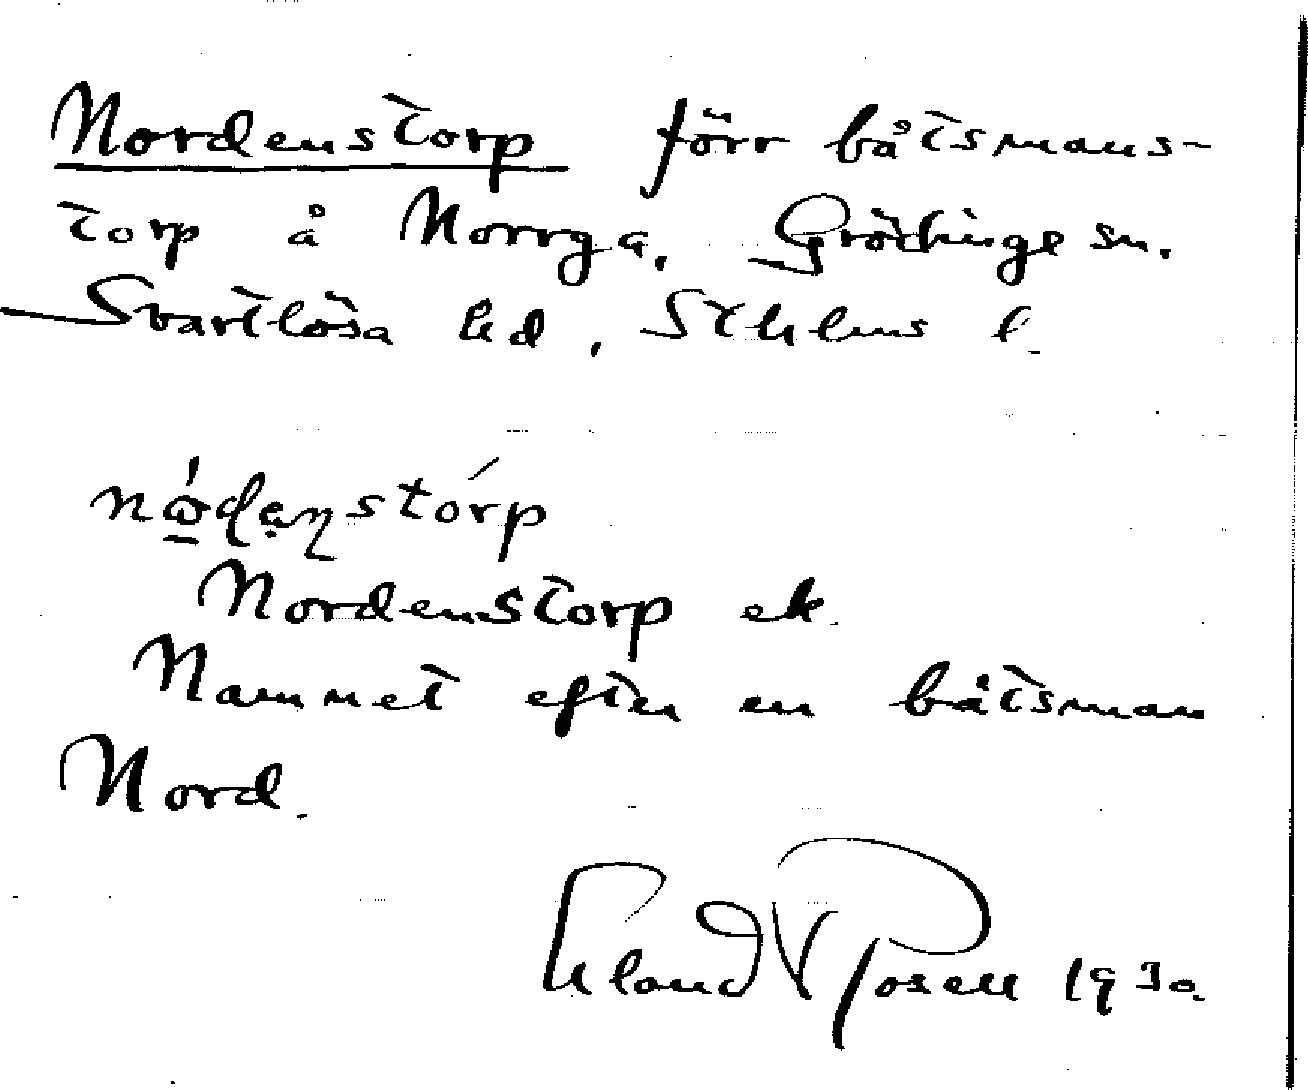 Nordenstorp förr båtsmans-
torp å Norrga, Grödinge sn.
Svartlösa hd, Sthlms l.
Nordenstorp ek.
Namnet efter en båtsman
Nord.
Erland Rosell 1930